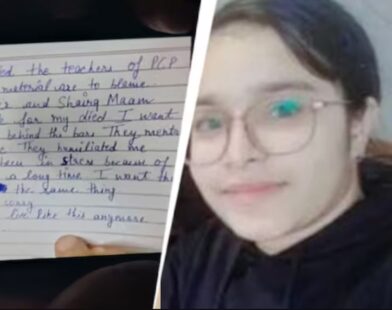 ed the teachers of PCP
material are to blame.
and Shairg Maam
for my died I want
behind the bars. They menta
They humiliated me
been in stress because of
a long time I want the
the same thing
live like this anymore